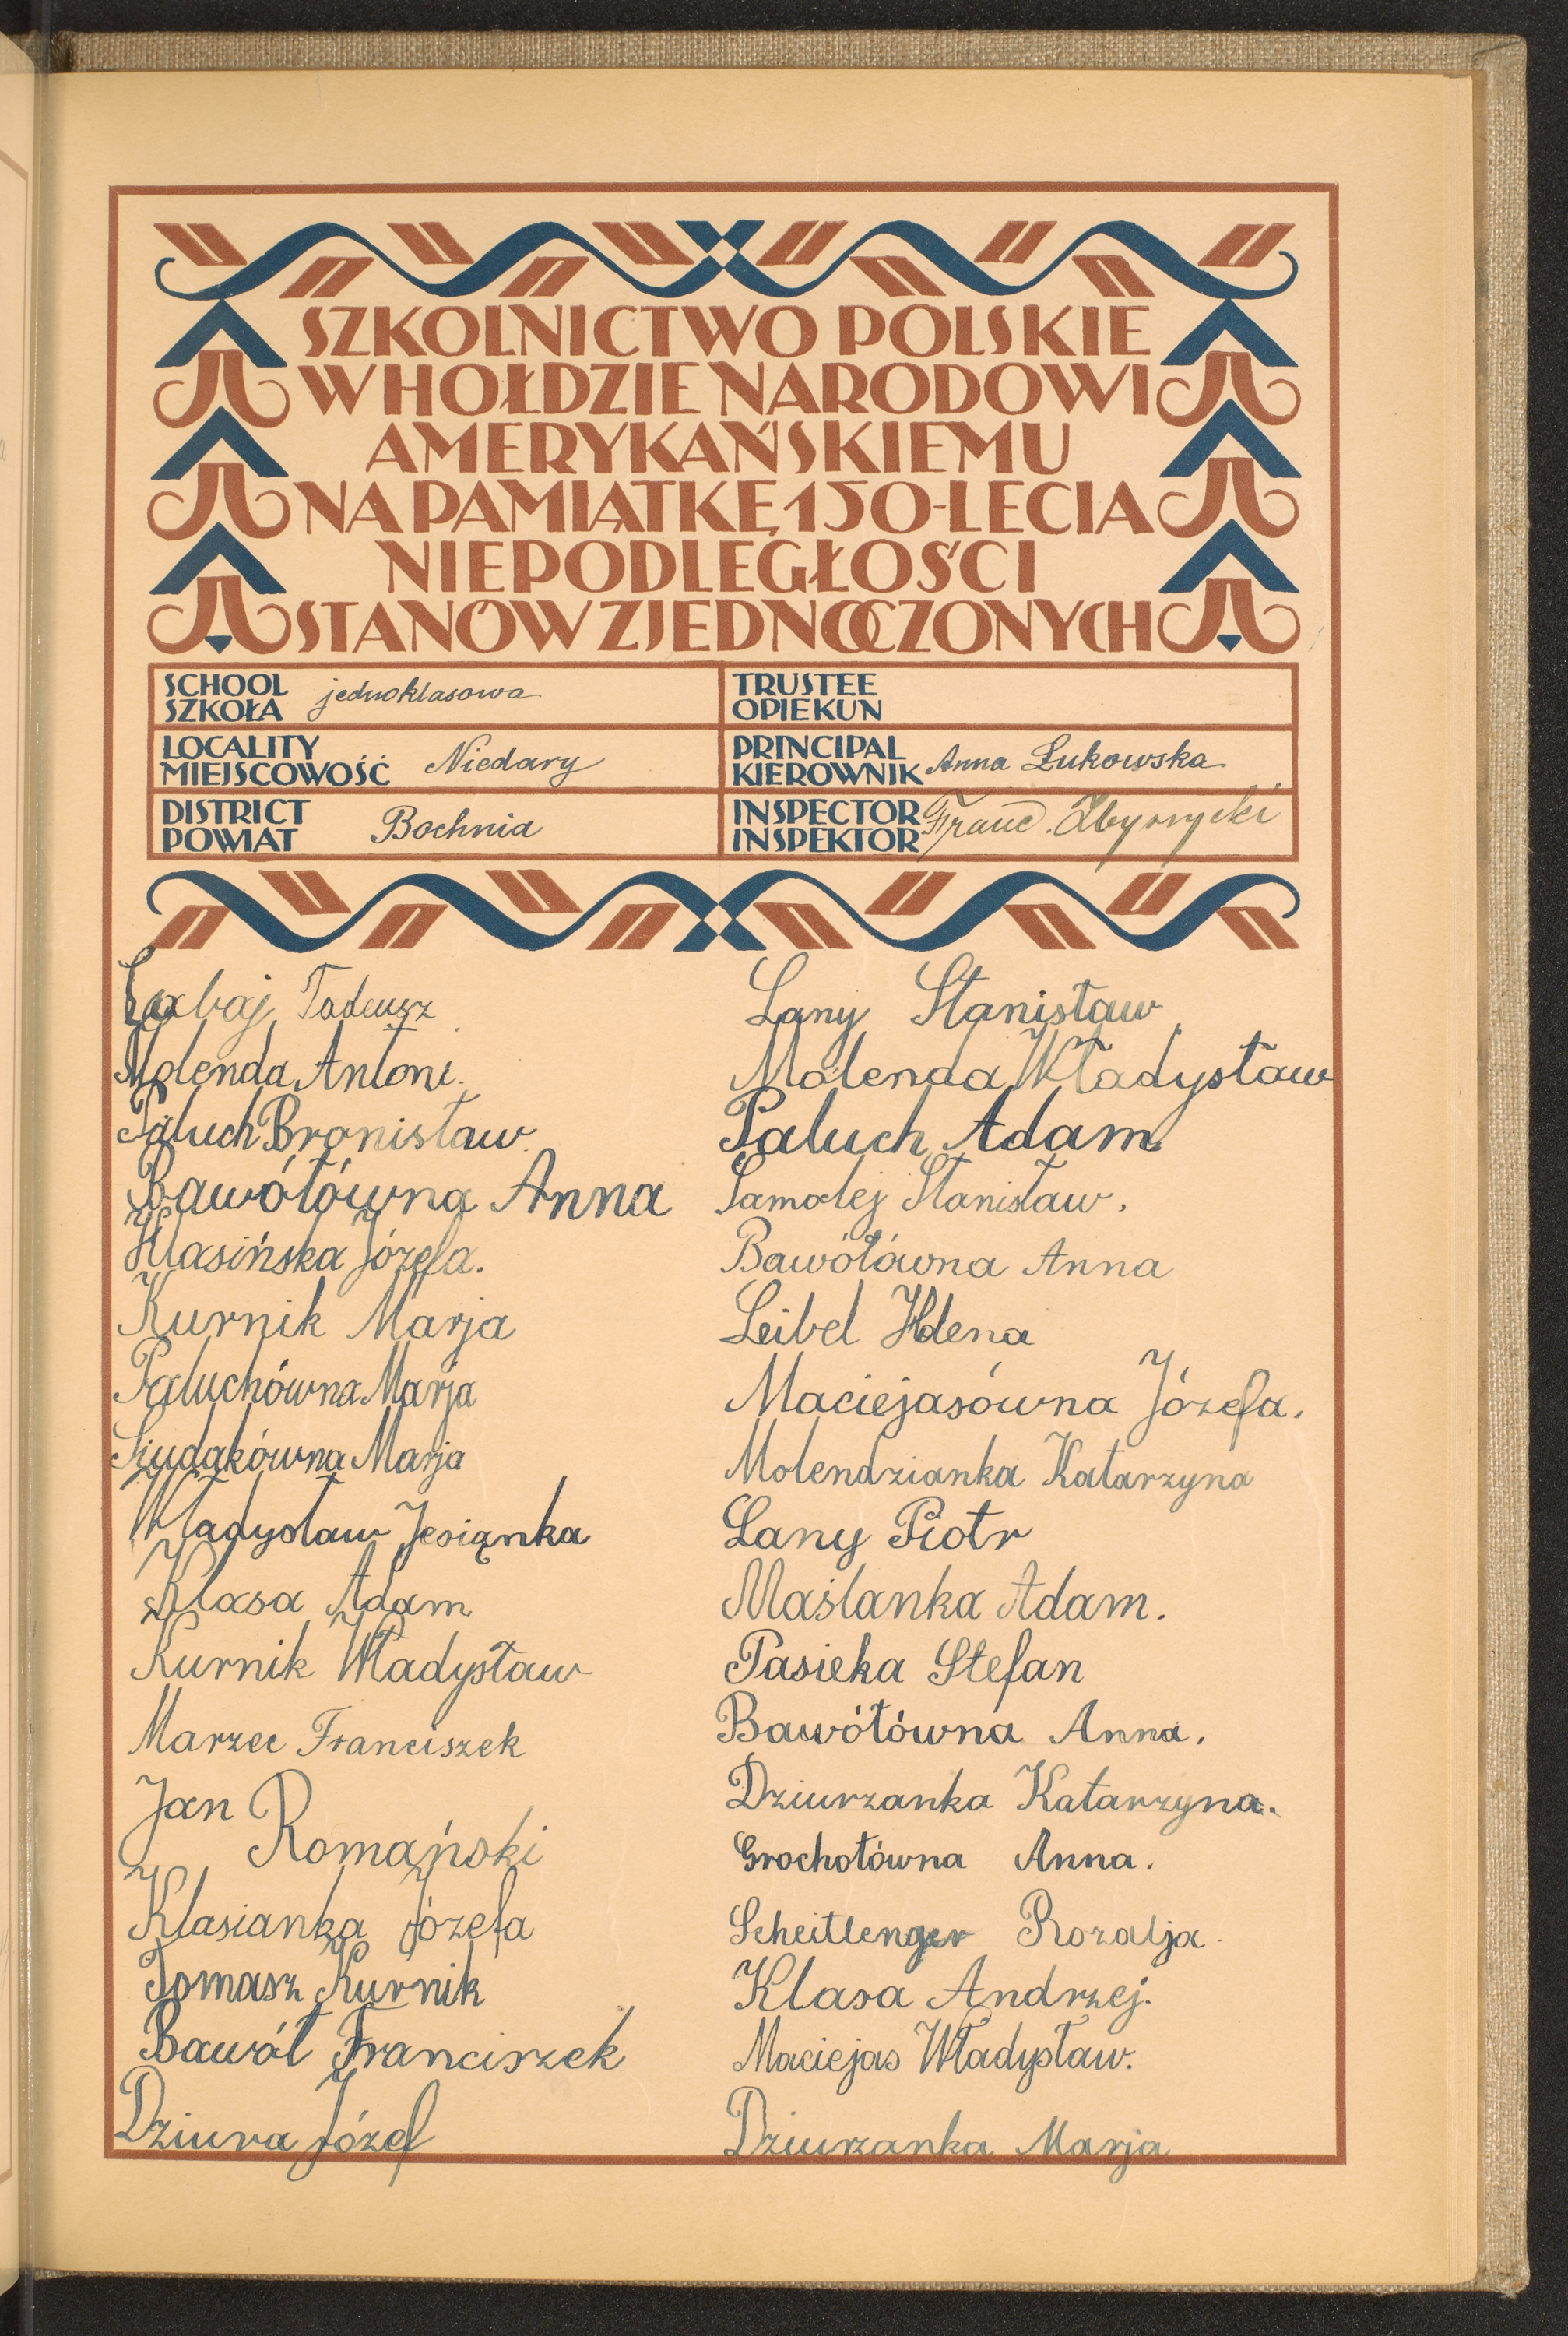 SZKOLNICTWO POLSKIE
W HOŁDZIE NARODOWI
AMERYKAŃSKIEMU
NA PAMIĄTKĘ 150-LECIA
NIEPODLEGŁOŚCI
STANÓW ZJEDNOCZONYCH
SCHOOL
SZKOŁA
jednoklasowa
TRUSTEE
OPIEKUN
LOCALITY
MIEJSCOWOŚĆ
Niedary
PRINCIPAL
KIEROWNIK
Anna Łukowska
DISTRICT
POWIAT
Bochnia
INSPECTOR
INSPEKTOR
Franc.
Tadeusz
Molenda Antoni.
Paluch Bronisław.
Bawółówna Anna
Klasińska Józefa.
Kurnik Marja
Paluchówna Marja
Siudakówna Marja
Władysław Jesiąnka
Klasa Adam
Kurnik Władysław
Marzec Franciszek
Jan
Romański
Klasianka Józefa
Tomasz Kurnik
Bawół Franciszek
Dziura Józef
Łany Stanisław
Molenda Władysław
Paluch Adam
Samolej Stanisław.
Bawółówna Anna
Leibel Helena
Maciejasówna Józefa.
Molendzianka Katarzyna
Łany Piotr
Maślanka Adam.
Pasieka Stefan
Bawółówna Anna.
Dziurzanka Katarzyna.
Grochotówna Anna.
Scheitlenger Rozalja.
Klasa Andrzej.
Maciejas Władysław.
Dziurzanka Marja